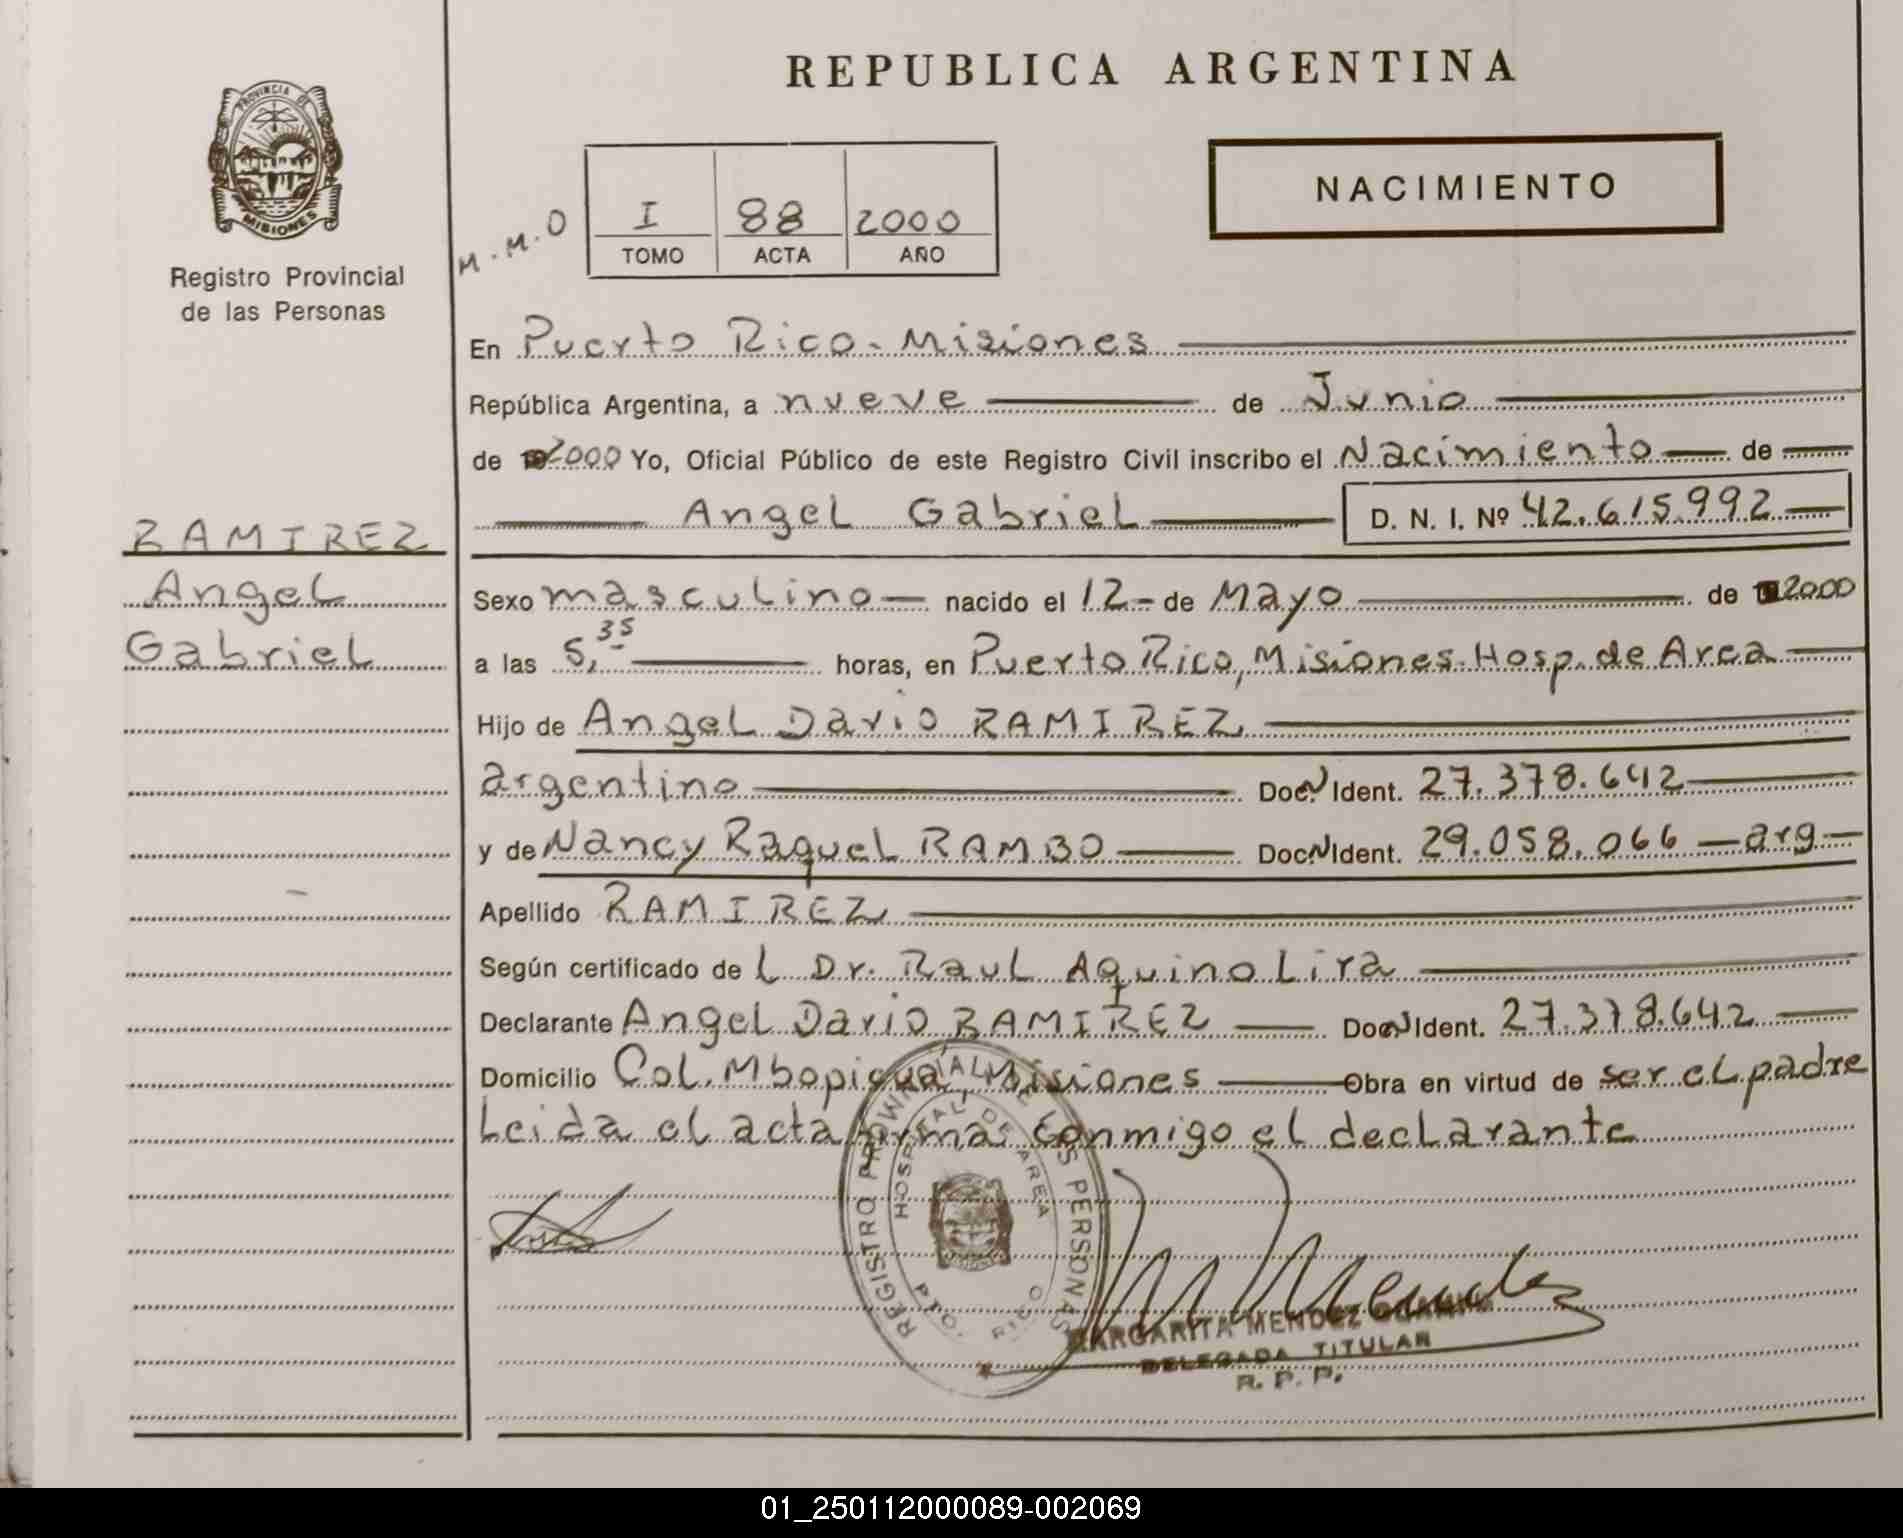 REPUBLICA ARGENTINA
PROVINCIA DE
MISIONES
Registro Provincial
de las Personas
M.M.O
I 88 2000
TOMO ACTA AÑO
NACIMIENTO
En Puerto Rico - Misiones
República Argentina, a nueve de Junio
de 2000 Yo, Oficial Público de este Registro Civil inscribo el Nacimiento de
Angel Gabriel D. N. I. Nº 42.615.992
RAMIREZ
Angel
Gabriel
Sexo masculino nacido el 12 de Mayo de 2000
a las 5,35 horas, en Puerto Rico, Misiones. Hosp. de Area
Hijo de Angel Dario RAMIREZ
argentino Doc. N Ident. 27.378.642
y de Nancy Raquel RAMBO Doc. N Ident. 29.058.066 - arg -
Apellido RAMIREZ
Según certificado de l Dr. Raul Aquino Lira
Declarante Angel Dario RAMIREZ Doc. N Ident. 27.378.642
Domicilio Col. Mbopicuá, Misiones Obra en virtud de ser el padre
Leida el acta firma conmigo el declarante
REGISTRO PROVINCIAL DE LAS PERSONAS
HOSPITAL DE AREA
PTO. RICO
M Mendez
MARGARITA MENDEZ
DELEGADA TITULAR
R. P. P.
01_250112000089-002069